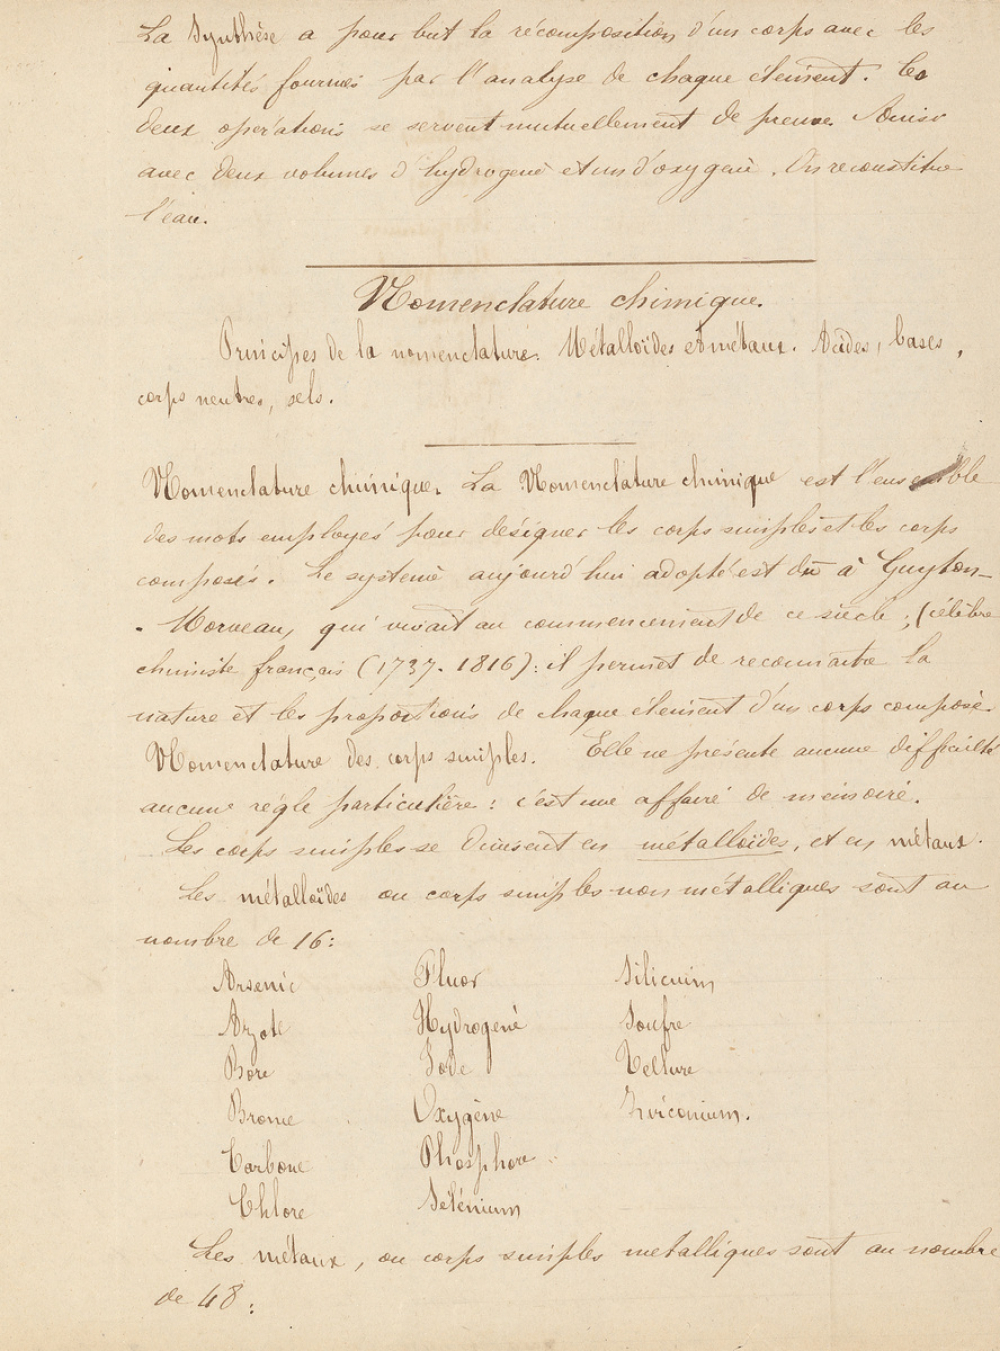 La Synthèse a pour but la récomposition d'un corps avec les
quantités fournies par l'analyse de chaque élément. Ces
deux opérations se servent mutuellement de preuve. Ainsi
avec deux volumes d'hydrogène et un d'oxygène. On reconstitue
l'eau.
Nomenclature chimique.
Principes de la nomenclature. Métalloïdes et métaux. Acides, bases,
corps neutres, sels.
Nomenclature chimique. La Nomenclature chimique est l'ensemble
des mots employés pour désigner les corps simples et les corps
composés. Le système aujourd'hui adopté est dû à Guyton-
- Morveau, qui vivait au commencement de ce siècle ; (célèbre
chimiste français (1737-1816): il permet de reconnaître la
nature et les proportions de chaque élément d'un corps composé.
Nomenclature des corps simples. Elle ne présente aucune difficulté
aucune règle particulière : c'est une affaire de mémoire.
Les corps simples se divisent en métalloïdes, et en métaux.
Les métalloïdes ou corps simples non métalliques sont au
nombre de 16:
Arsenic Fluor Silicium
Azote Hydrogène Soufre
Bore Iode Tellure
Brome Oxygène Zirconium.
Carbone Phosphore
Chlore Sélénium
Les métaux, ou corps simples metalliques sont au nombre
de 48 :